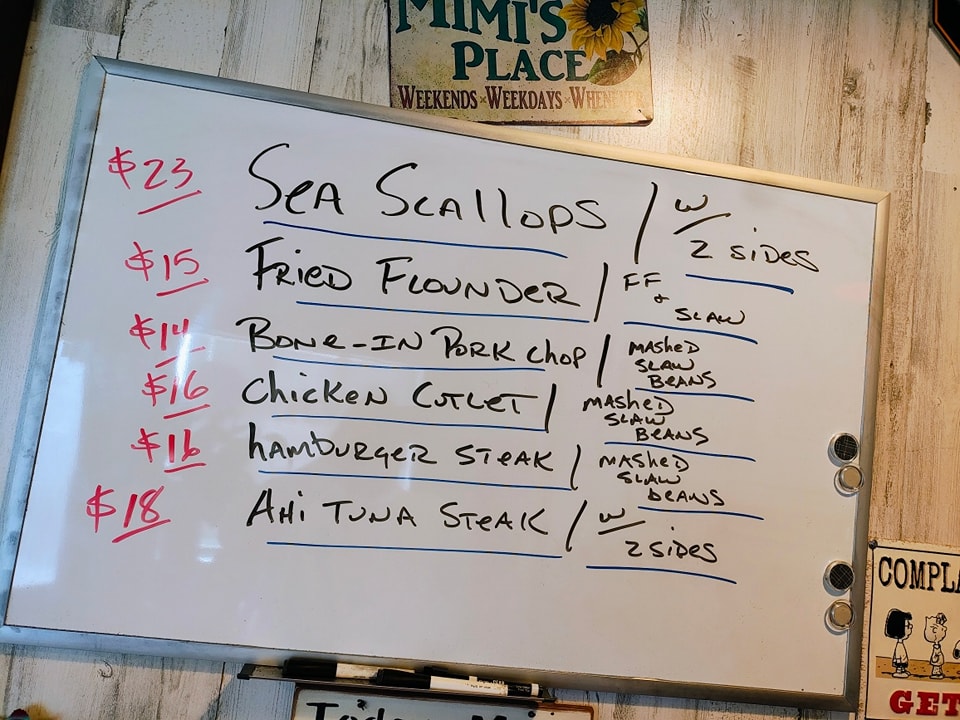 MIMI'S
PLACE
WEEKENDS WEEKDAYS
$23 SEA SCALLOPS / W/
2 SIDES
$15 FRIED FLOUNDER / FF
+ SLAW
$14 BONE-IN PORK CHOP / MASHED
SLAW
BEANS
$16 CHICKEN CUTLET / MASHED
SLAW
BEANS
$16 HAMBURGER STEAK / MASHED
SLAW
BEANS
$18 AHI TUNA STEAK / W/
2 SIDES
GET